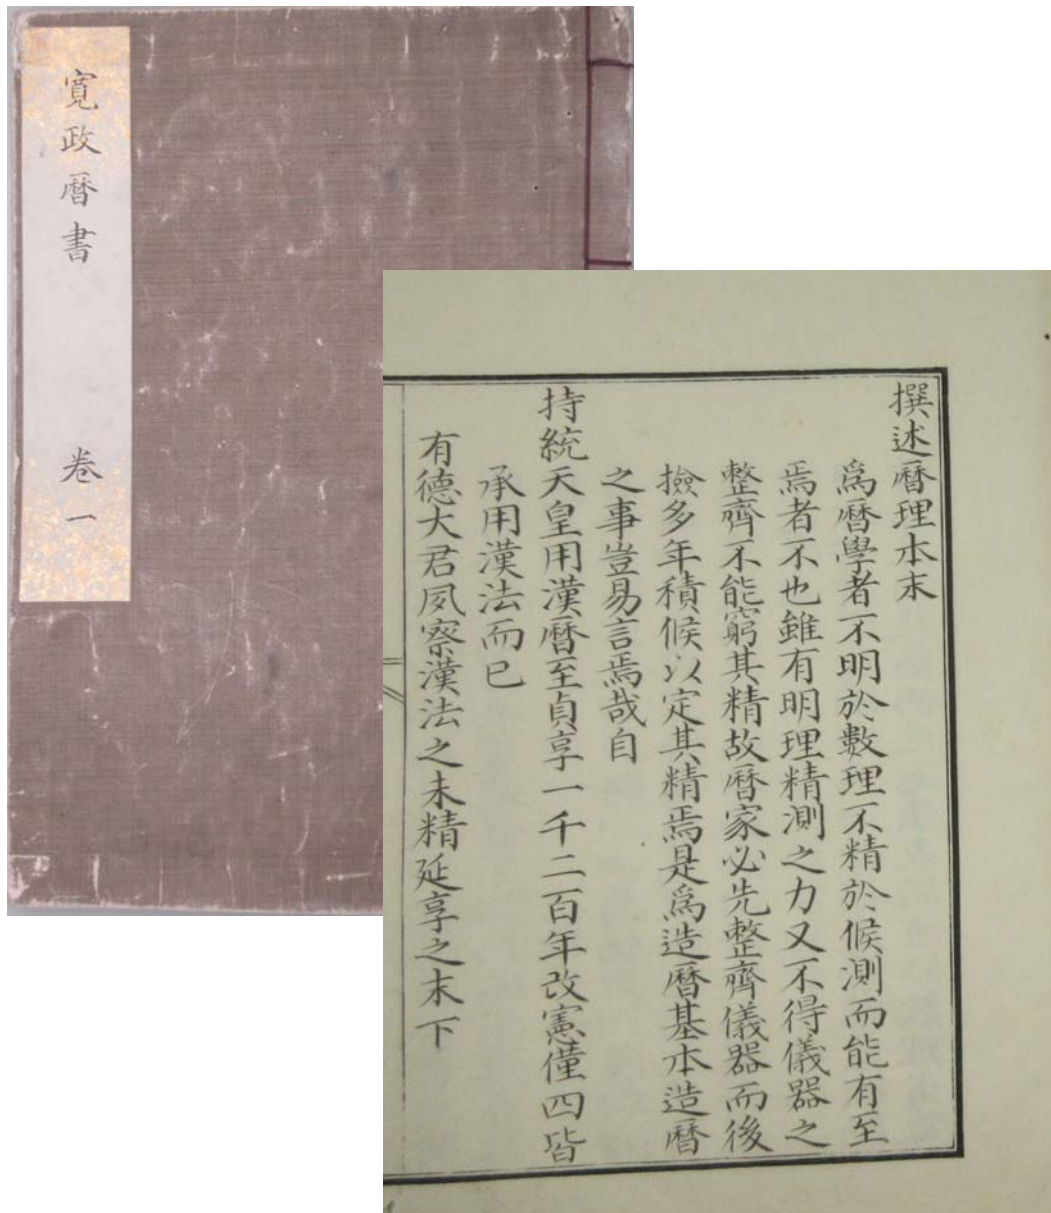 寛政暦書
卷一
撰述暦理本末
爲暦學者不明於數理不精於候測而能有至
焉者不也雖有明理精測之力又不得儀器之
整齊不能窮其精故暦家必先整齊儀器而後
撿多年積候以定其精焉是爲造暦基本造暦
之事豈易言焉哉自
持統天皇用漢暦至貞享一千二百年改憲僅四皆
承用漢法而已
有德大君夙察漢法之未精延享之末下